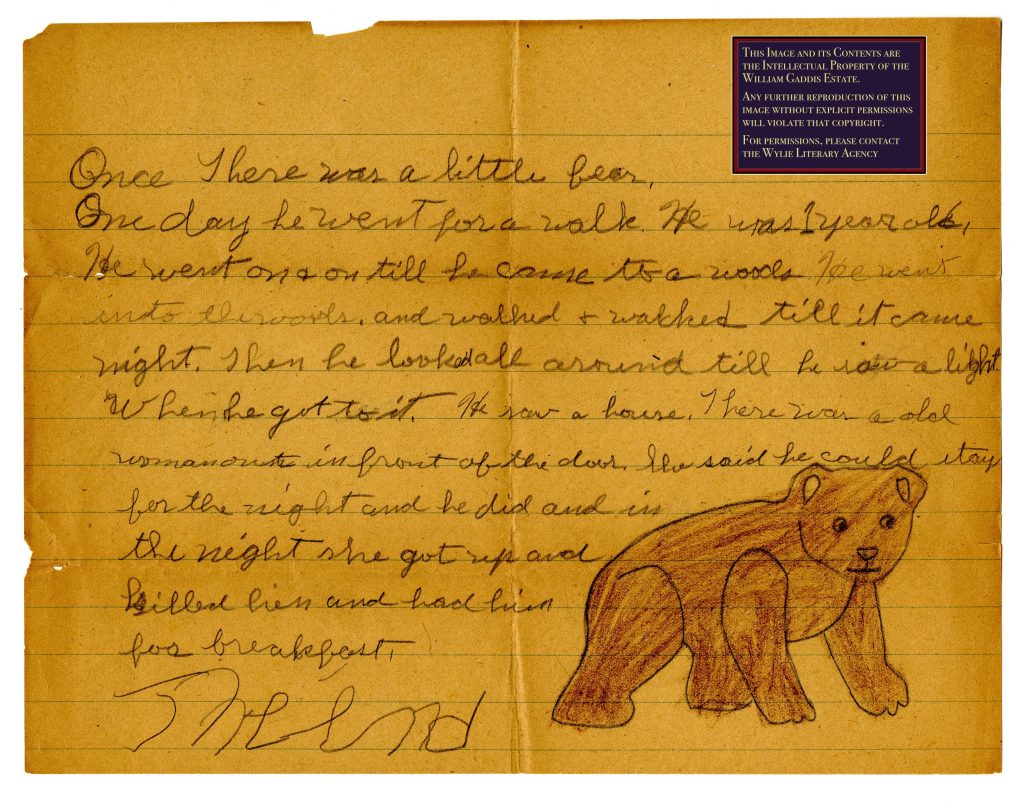 This Image and its Contents are
the Intellectual Property of the
William Gaddis Estate.
Any further reproduction of this
image without explicit permissions
will violate that copyright.
For permissions, please contact
the Wylie Literary Agency
Once There was a little bear,
One day he went for a walk. He was 1 year old,
He went on & on till he came to a woods He went
into the woods. and walked & walked till it came
night. Then he looked all around till he saw a light
When he got to it. He saw a house. There was a old
woman out in front of the door. She said he could stay
for the night and he did and in
the night she got up and
killed him and had him
for breakfast.
The End